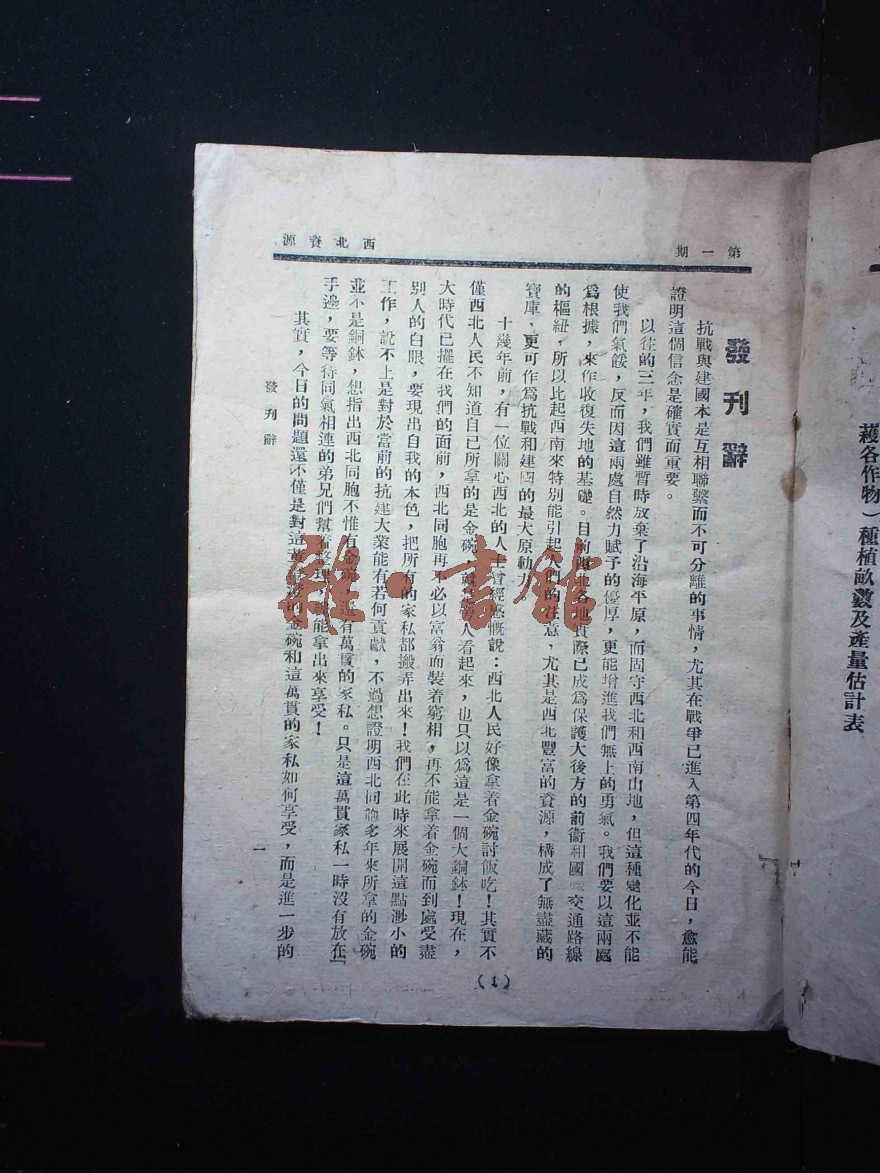 穫各作物）種植畝數及產量估計表
第一期
西北資源
發刊辭
抗戰與建國本是互相聯繫而不可分離的事情，尤其在戰爭已進入第四年代的今日，愈能
證明這個信念是確實而重要。
以往的三年，我們雖暫時放棄了沿海平原，而固守西北和西南山地，但這種變化並不能
使我們氣餒，反而因這兩處自然力賦予的優厚，更能增進我們無上的勇氣。我們要以這兩處
爲根據，來作收復失地的基礎。目前西北各地實際已成爲保護大後方的前衞和國交通路線
的樞紐，所以比起西南來特別能引起人們的注意，尤其是西北豐富的資源，構成了無盡藏的
寶庫，更可作爲抗戰和建國的最大原動力
十幾年前，有一位關心西北的人士曾經感慨說：西北人民好像拿着金碗討飯吃！其實不
僅西北人民不知道自己所拿的是金碗，就人看起來，也只以爲這是一個大銅鉢！現在，
大時代已擺在我們的面前，西北同胞再不必以富翁而裝着窮相，再不能拿着金碗而到處受盡
別人的白眼，要現出自我的本色，把所有的家私都搬弄出來！我們在此時來展開這點渺小的
工作，說不上是對於當前的抗建大業能有若何貢獻，不過想證明西北同胞多年來所拿的金碗
並不是銅鉢，想指出西北同胞不惟有金碗，還有萬貫的家私。只是這萬貫家私一時沒有放在
手邊，要等待同氣相連的弟兄們幫着整理，能拿出來享受！
其實，今日的問題還不僅是對這黃的金碗和這萬貫的家私如何享受，而是進一步的
發刊辭
一
(1)
雜·書館